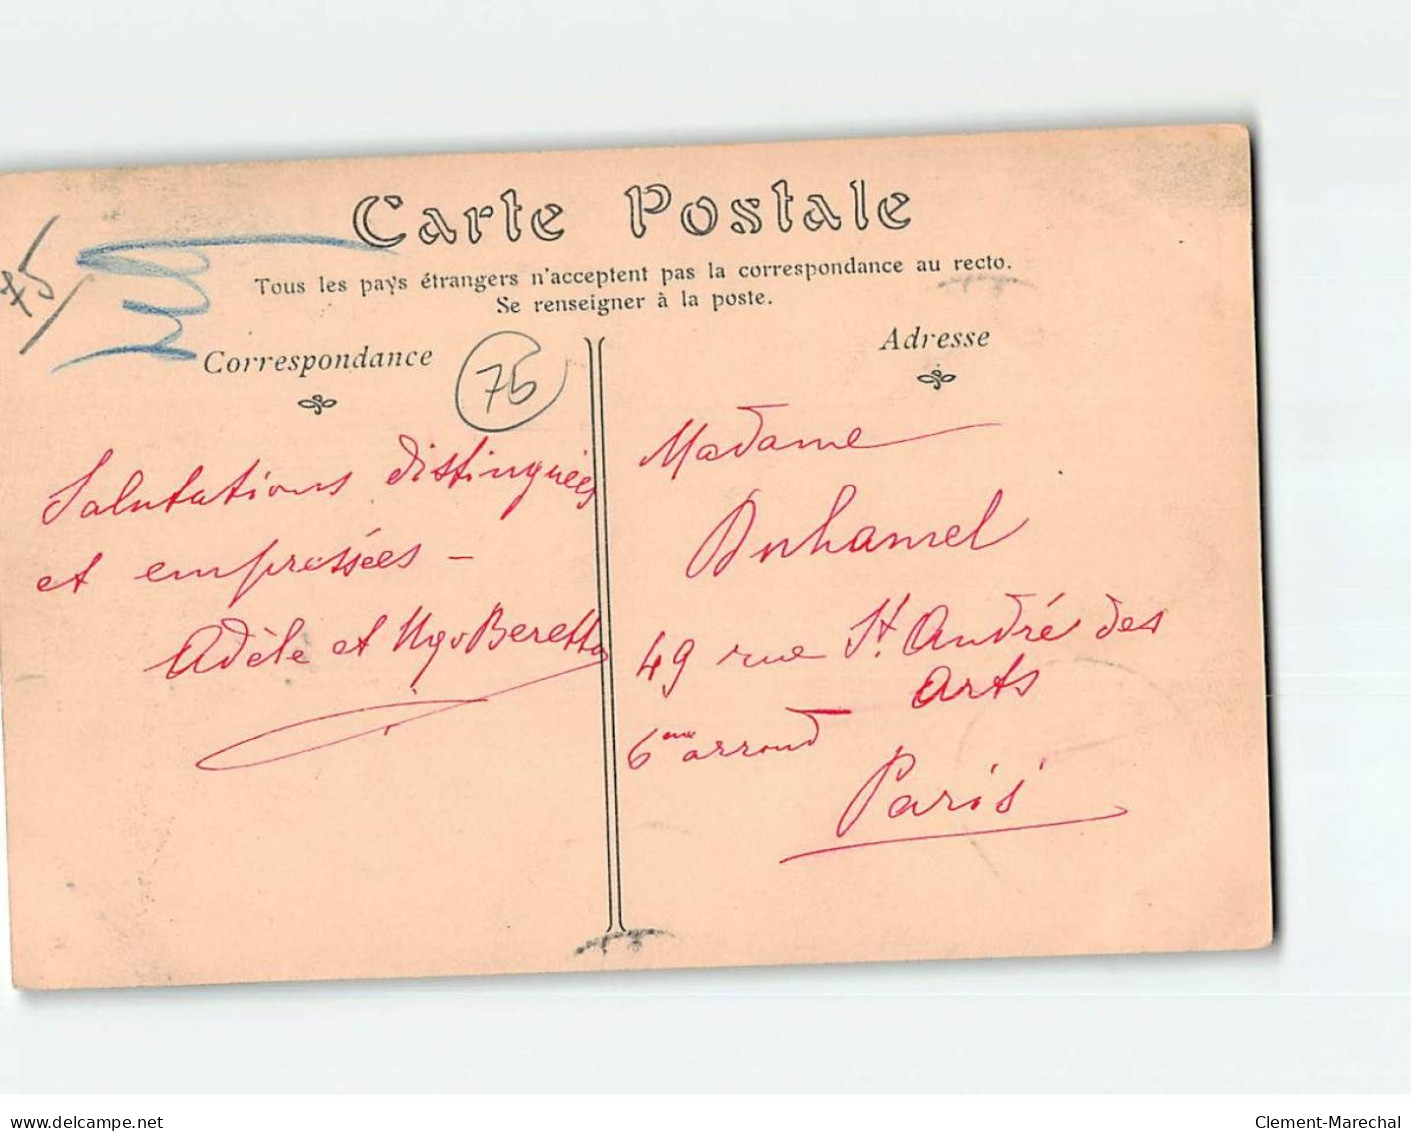 Carte Postale
Tous les pays étrangers n'acceptent pas la correspondance au recto.
Se renseigner à la poste.
75
Correspondance
75
Adresse
Salutations distinguées
et empressées –
Adèle et Ugo Beretta
Madame
Duhamel
49 rue St. André des
Arts
6eme arrond
Paris
www.delcampe.net
Clement-Marechal